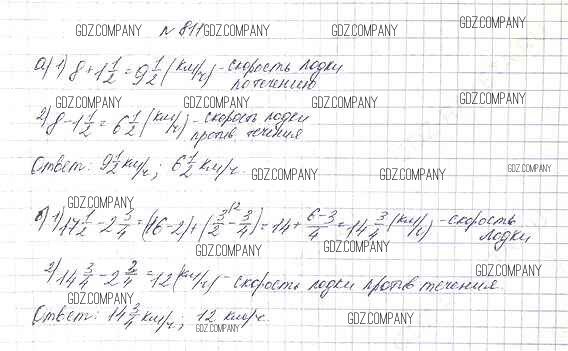 GDZ.COMPANY № 811 GDZ.COMPANY GDZ.COMPANY GDZ.COMPANY
а) 1) 8 + 1 1/2 = 9 1/2 (км/ч) - скорость лодки
по течению
GDZ.COMPANY GDZ.COMPANY GDZ.COMPANY GDZ.COMPANY
2) 8 - 1 1/2 = 6 1/2 (км/ч) - скорость лодки
против течения
Ответ: 9 1/2 км/ч; 6 1/2 км/ч.
GDZ.COMPANY GDZ.COMPANY GDZ.COMPANY
GDZ.COMPANY
б) 1) 17 1/2 - 2 3/4 = (16 - 2) + (3/2 \2 - 3/4) = 14 + 6-3/4 = 14 3/4 (км/ч) - скорость
лодки
GDZ.COMPANY GDZ.COMPANY
2) 14 3/4 - 2 3/4 = 12 (км/ч) - скорость лодки против течения
GDZ.COMPANY GDZ.COMPANY
Ответ: 14 3/4 км/ч; 12 км/ч.
GDZ.COMPANY GDZ.COMPANY